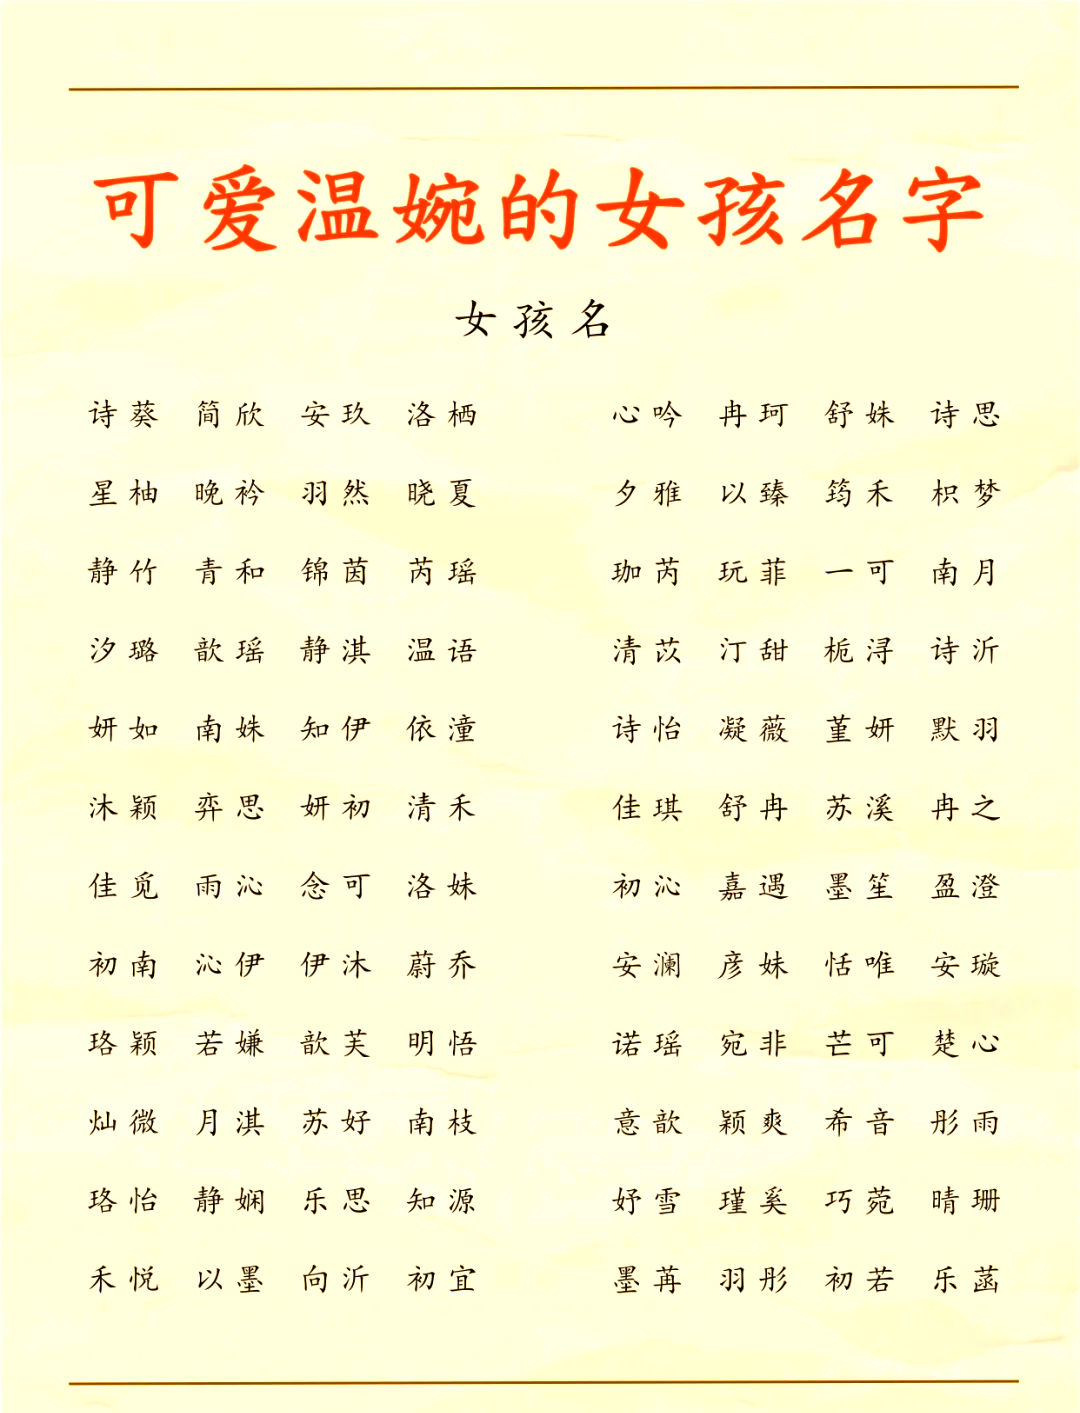 可爱温婉的女孩名字
女孩名
诗葵 简欣 安玖 洛栖 心吟 冉珂 舒姝 诗思
星柚 晚衿 羽然 晓夏 夕雅 以臻 筠禾 枳梦
静竹 青和 锦茵 芮瑶 珈芮 玩菲 一可 南月
汐璐 歆瑶 静淇 温语 清苡 汀甜 栀浔 诗沂
妍如 南姝 知伊 依潼 诗怡 凝薇 堇妍 默羽
沐颖 弈思 妍初 清禾 佳琪 舒冉 苏溪 冉之
佳觅 雨沁 念可 洛妹 初沁 嘉遇 墨笙 盈澄
初南 沁伊 伊沐 蔚乔 安澜 彦妹 恬唯 安璇
珞颖 若嫌 歆芙 明悟 诺瑶 宛非 芒可 楚心
灿微 月淇 苏好 南枝 意歆 颖爽 希音 彤雨
珞怡 静娴 乐思 知源 妤雪 瑾奚 巧菀 晴珊
禾悦 以墨 向沂 初宜 墨苒 羽彤 初若 乐菡